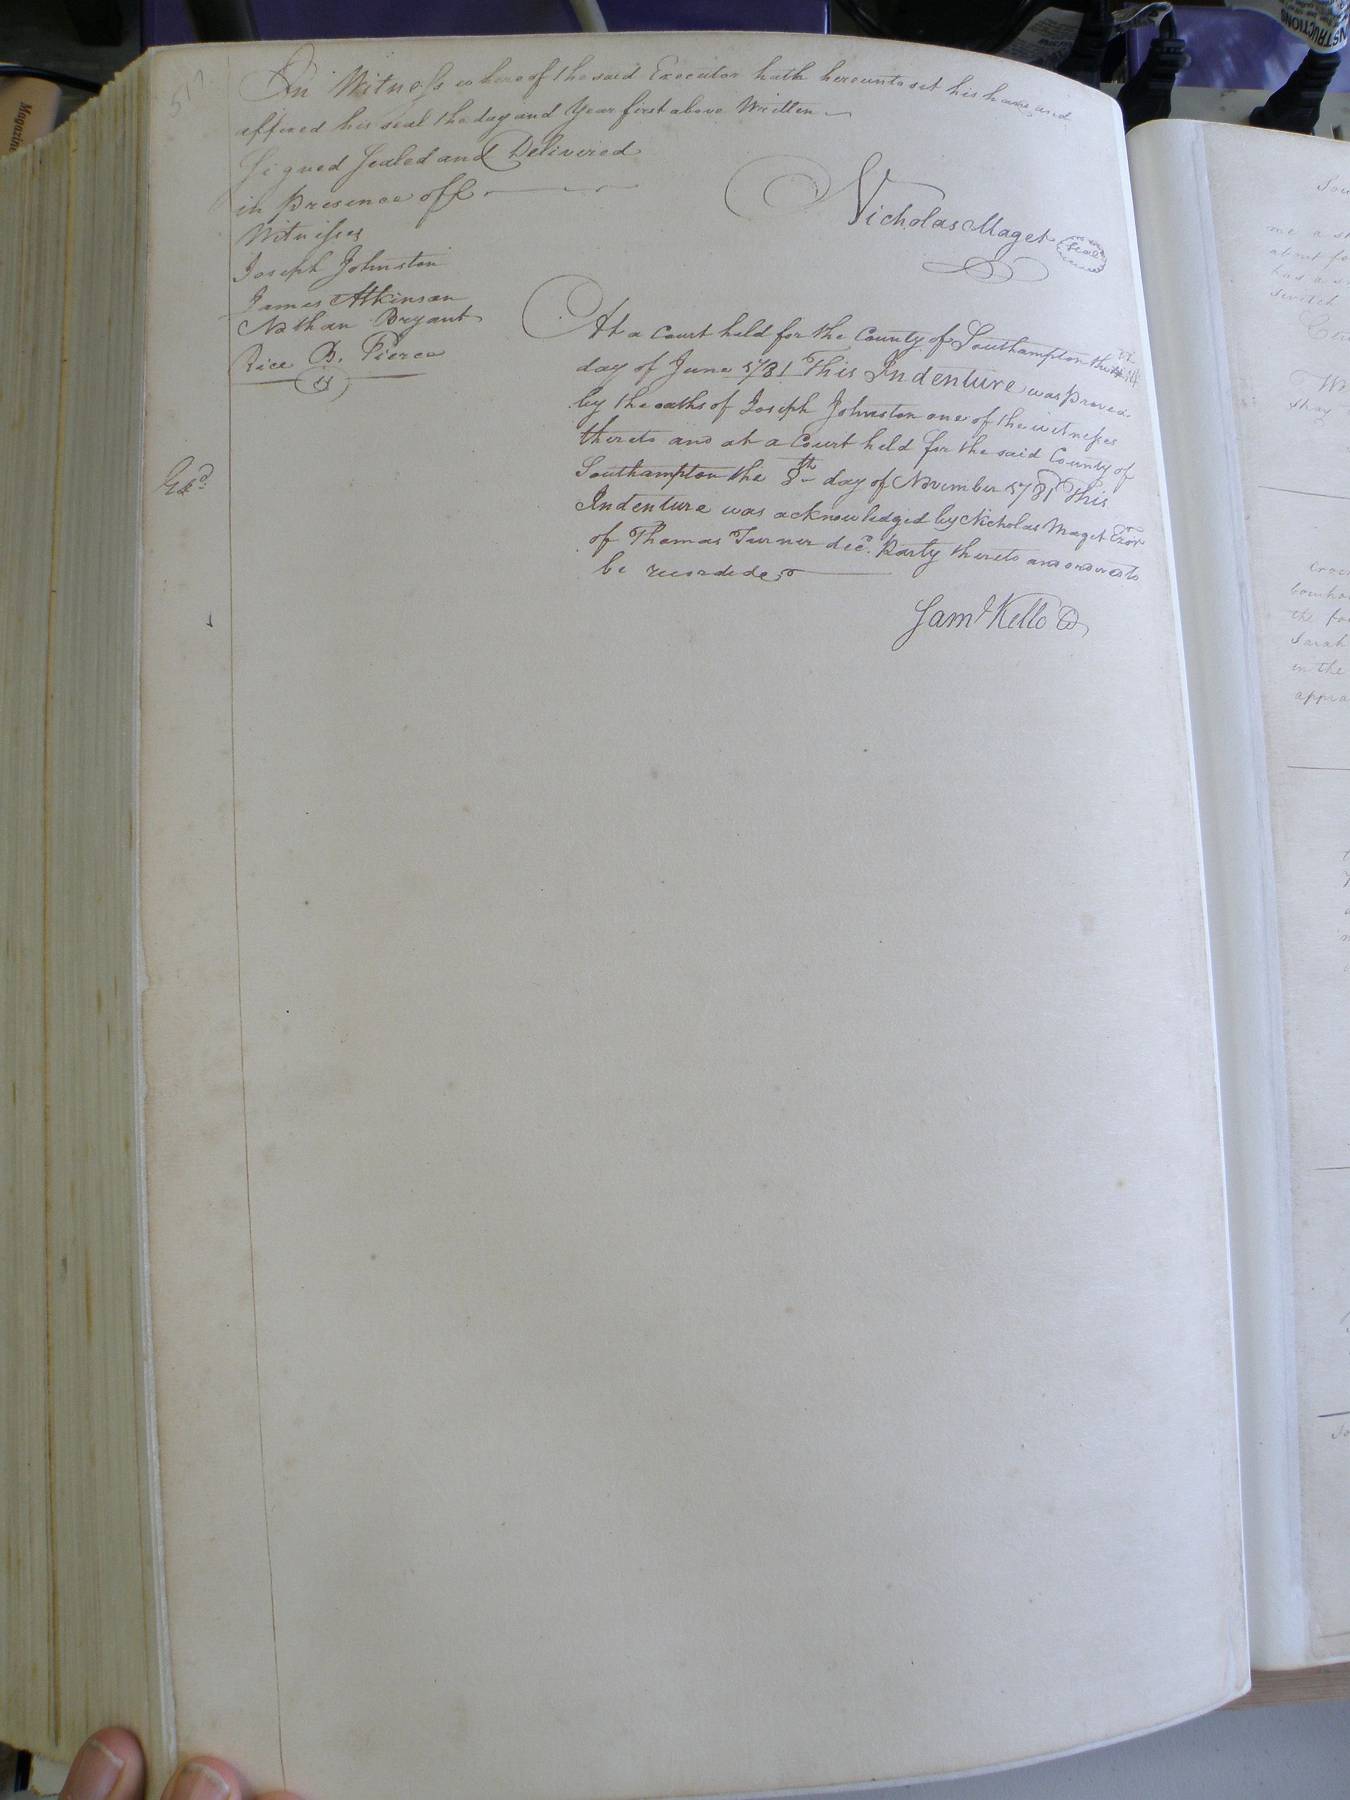 517
In Witness whereof the said Executor hath hereunto set his hand and
affixed his seal the day and Year first above Written
Signed Sealed and Delivered
in Presence off
Witnesses
Joseph Johnston
James Atkinson
Nathan Bryant
Rice B. Pierce
Nicholas Maget
Seal
At a Court held for the County of Southampton the 14th
day of June 1781 This Indenture was Proved
by the oaths of Joseph Johnston one of the witnesses
thereto and at a Court held for the said County of
Southampton the 8th day of November 1781 This
Indenture was acknowledged by Nicholas Maget Exor
of Thomas Turner decd. Party thereto and ordered to
be recorded
Ex.d
Saml Kello
me a
about
has a
switch
they
the
Sarah
in the
appra
Magazine
INSTRUCTIONS